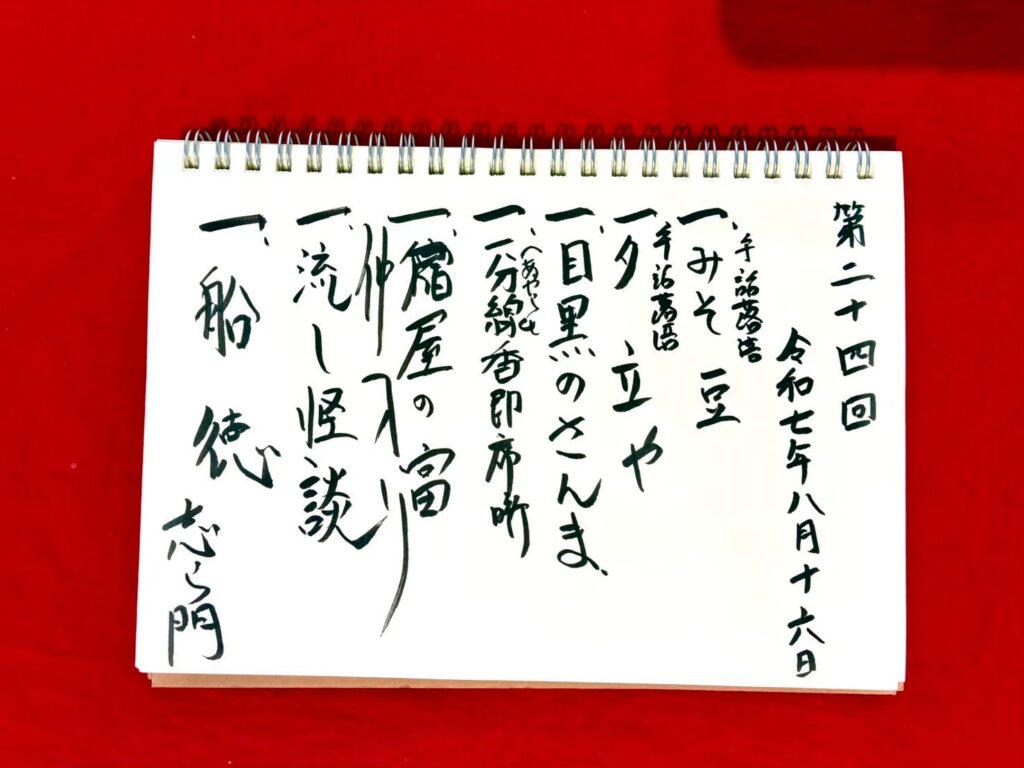 第二十四回
令和七年八月十六日
手話落語
一、みそ豆
手話落語
一、夕立や
一、目黒のさんま
一、一分線香即席噺
一、宿屋の富
仲入り
一、流し怪談
一、船徳
志ら門